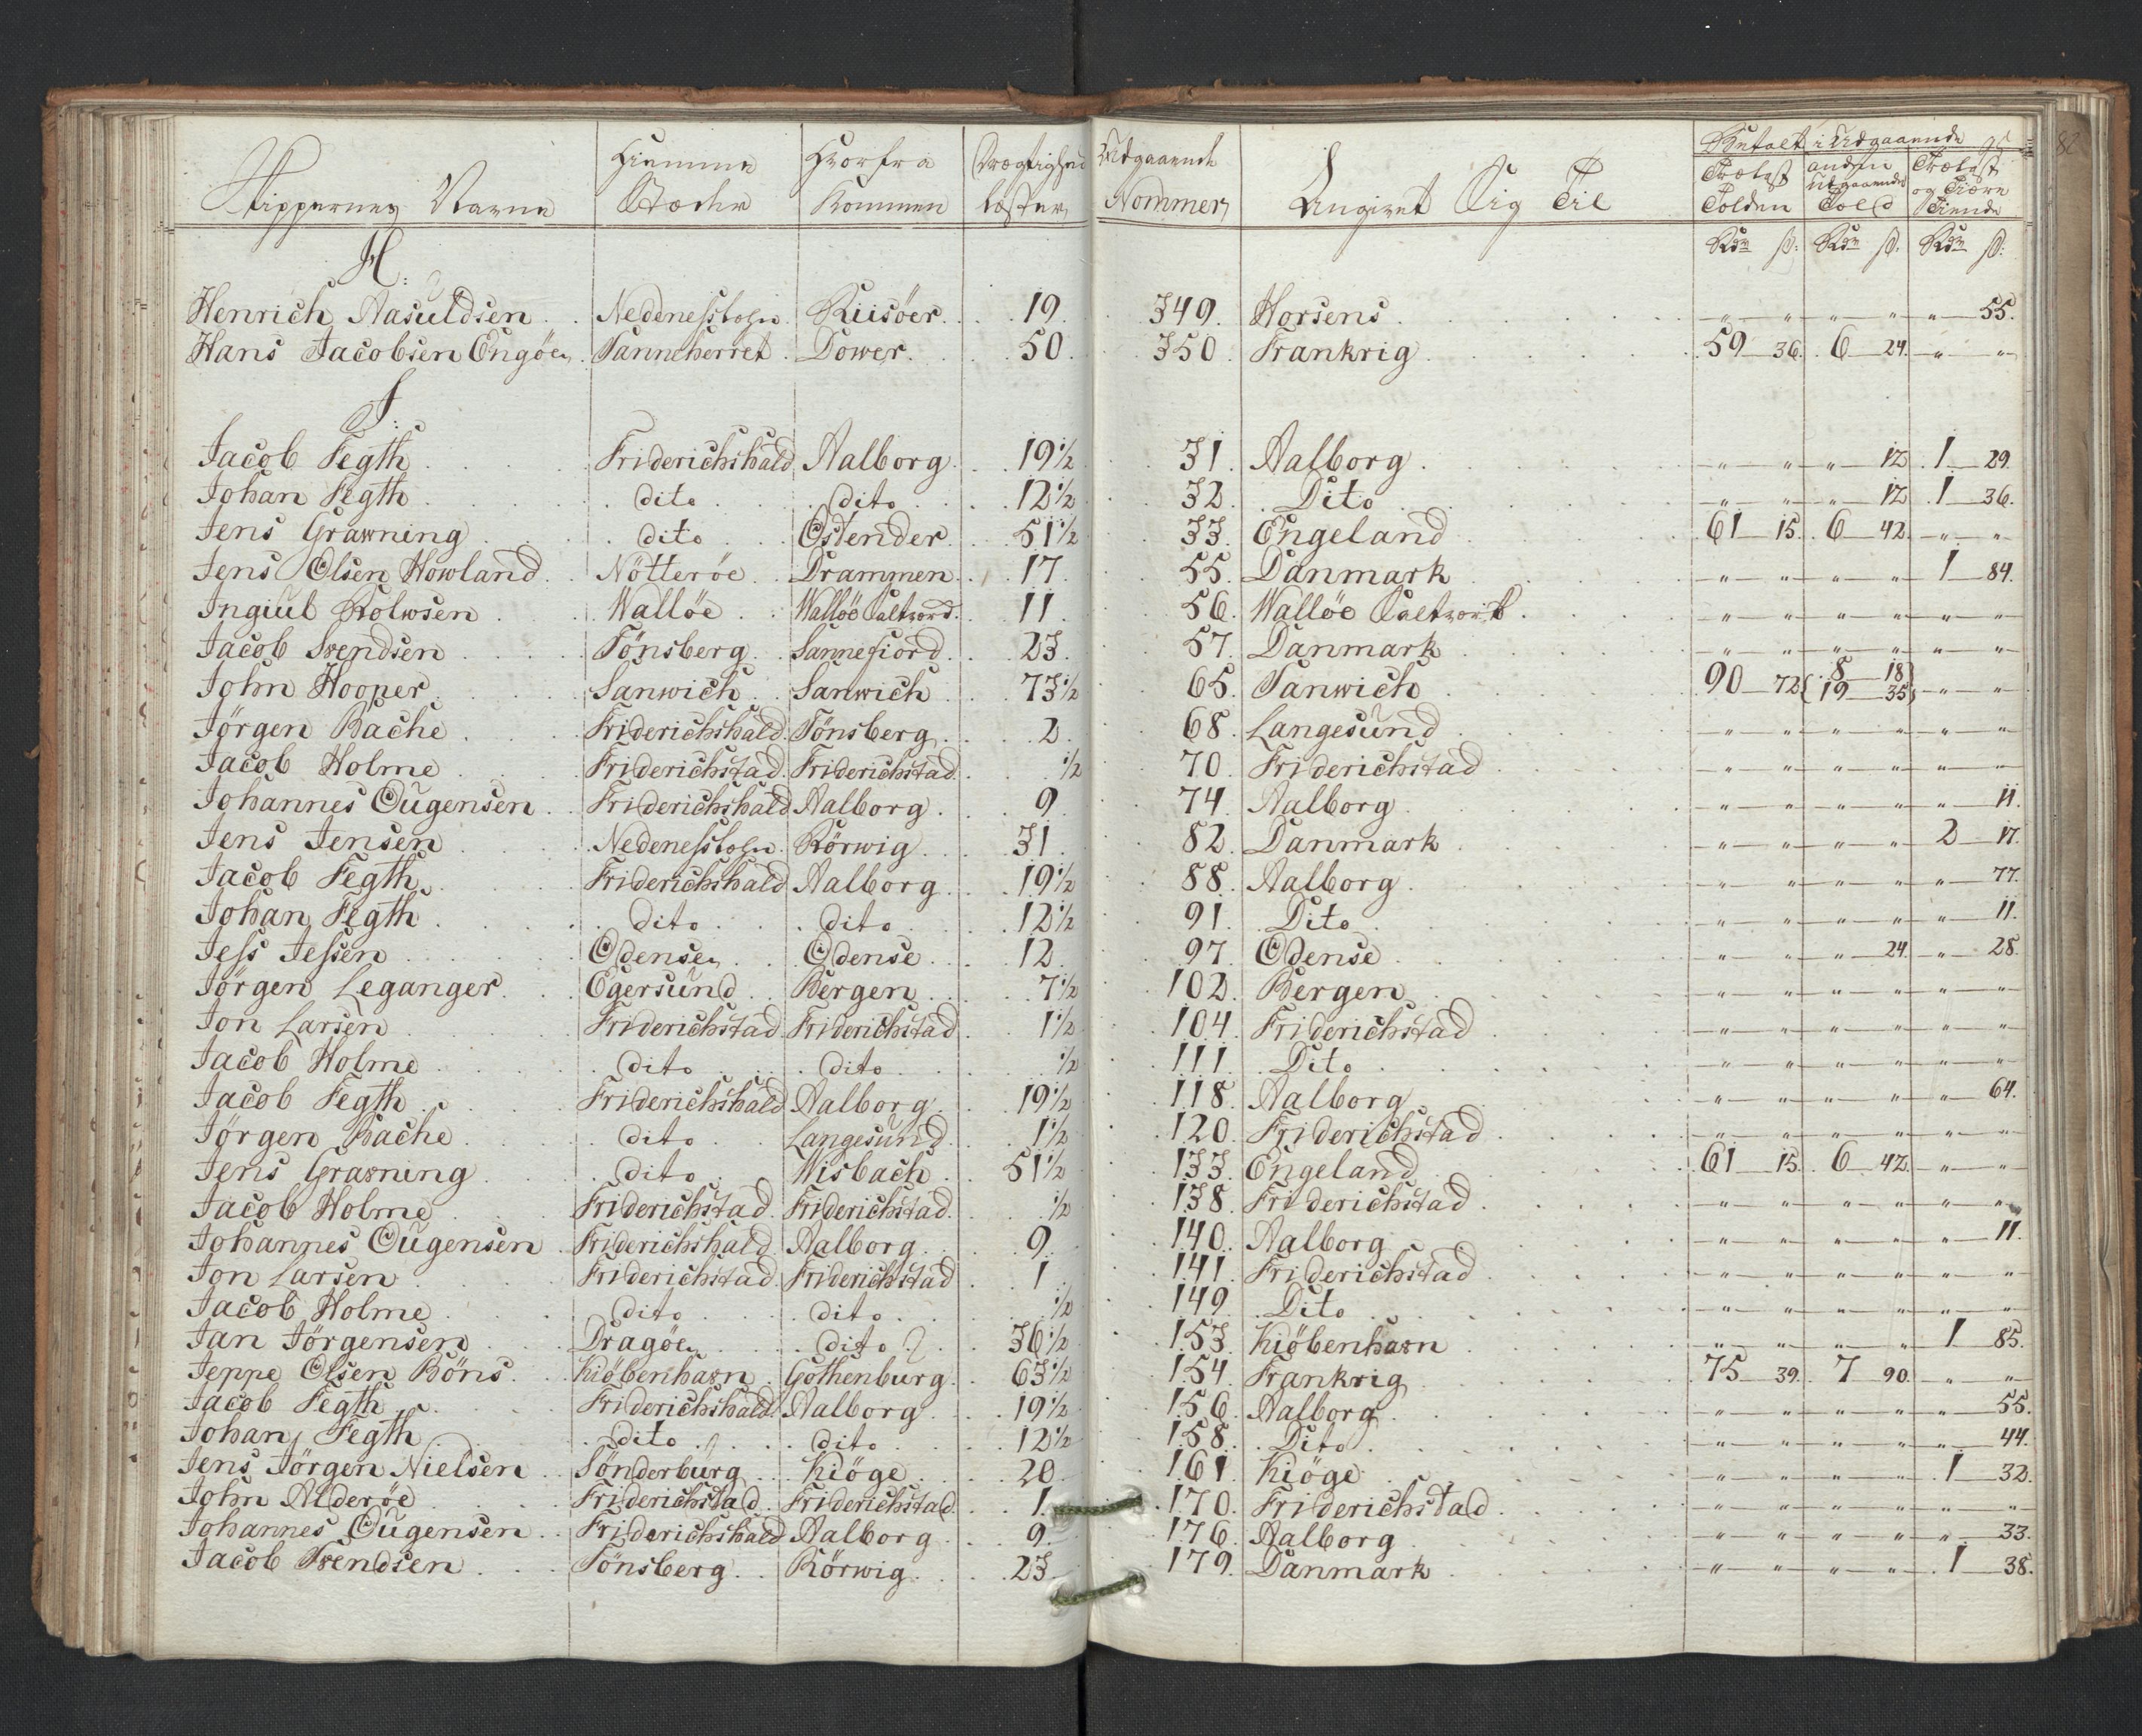 Skippernes Navne | Hiemme Stæder | Hvorfra Kommen | Drægtighed Læster | Udgaaende Nommer | Angivet Sig Til | Betalt i Udgaaende
Trælast Tolden | anden udgaaende Told | Trælast og Tiære Tiende
Rdr ß: | Rdr ß. | Rdr ß:
82
H:
Henrich Aasuldsen | Nedenesslehn | Riisöer | 19 | 349 | Horsens | " " | " " | " 55.
Hans Jacobsen Engöe | Tanneherret | Dower | 50 | 350 | Frankrig | 59 36. | 6 24. | " "
J:
Jacob Fegth | Friderichshald | Aalborg | 19 1/2 | 31 | Aalborg | " " | " 12 | 1 29.
Johan Fegth | dito | dito | 12 1/2 | 32 | Dito | " " | " 12 | 1 36.
Jens Grawning | dito | Ostender | 51 1/2 | 33 | Engeland | 61 15. | 6 42. | " "
Jens Olsen Howland | Nötteröe | Drammen | 17 | 55 | Danmark | " " | " " | 1 84.
Ingiul Rolwsen | Walløe | Walløe Saltværd | 11 | 56 | Walløe Saltværk | " " | " " | " "
Jacob Svendsen | Tönsberg | Sannefiord | 23 | 57 | Danmark | " " | " " | " "
John Hooper | Sanwich | Sanwich | 73 1/2 | 65 | Sanwich | 90 72 | 8 18 19 35 | " "
Jörgen Bache | Friderichshald | Tönsberg | 2 | 68 | Langesund | " " | " " | " "
Jacob Holme | Friderichstad | Friderichstad | 1/2 | 70 | Friderichstad | " " | " " | " "
Johannes Ougensen | Friderichshald | Aalborg | 9 | 74 | Aalborg | " " | " " | " 11.
Jens Jensen | Nedenesslehn | Rörwig | 31 | 82 | Danmark | " " | " " | 2 17.
Jacob Fegth | Friderichshald | Aalborg | 19 1/2 | 88 | Aalborg | " " | " " | " 77.
Johan Fegth | dito | dito | 12 1/2 | 91 | Dito | " " | " " | " 11.
Jess Jessen | Odense | Odense | 12 | 97 | Odense | " " | " 24. | " 28
Jörgen Leganger | Egersund | Bergen | 7 1/2 | 102 | Bergen | " " | " " | " "
Jon Larsen | Friderichstad | Friderichstad | 1 1/2 | 104 | Friderichstad | " " | " " | " "
Jacob Holme | dito | dito | 1/2 | 111 | Dito | " " | " " | " "
Jacob Fegth | Friderichshald | Aalborg | 19 1/2 | 118 | Aalborg | " " | " " | " 64.
Jörgen Bache | dito | Langesund | 1 1/2 | 120 | Friderichstad | " " | " " | " "
Jens Grawning | dito | Wisbach | 51 1/2 | 133 | Engeland | 61 15. | 6 42. | " "
Jacob Holme | Friderichstad | Friderichstad | 1/2 | 138 | Friderichstad | " " | " " | " "
Johannes Ougensen | Friderichshald | Aalborg | 9 | 140 | Aalborg | " " | " " | " 11.
Jon Larsen | Friderichstad | Friderichstad | 1 | 141 | Friderichstad | " " | " " | " "
Jacob Holme | dito | dito | 1/2 | 149 | Dito | " " | " " | " "
Jan Jörgensen | Dragöe | dito | 36 1/2 | 153 | Kiöbenhavn | " " | " " | 1 85.
Jeppe Olsen Böns | Kiöbenhavn | Gothenburg | 63 1/2 | 154 | Frankrig | 75 39. | 7 90. | " "
Jacob Fegth | Friderichshald | Aalborg | 19 1/2 | 156 | Aalborg | " " | " " | " 55.
Johan Fegth | dito | dito | 12 1/2 | 158 | Dito | " " | " " | " 44.
Jens Jörgen Nielsen | Sönderburg | Kiöge | 20 | 161 | Kiöge | " " | " " | 1 32.
John Alderöe | Friderichstad | Friderichstad | 1 | 170 | Friderichstad | " " | " " | " "
Johannes Ougensen | Friderichshald | Aalborg | 9 | 176 | Aalborg | " " | " " | " 33.
Jacob Svendsen | Tönsberg | Rörwig | 23 | 179 | Danmark | " " | " " | 1 38.